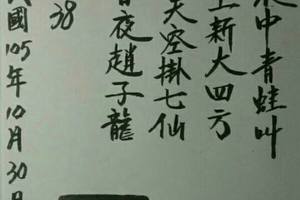 中青蛙叫
新大四方
天空掛七仙
夜趙子龍
38
國105年10月30日